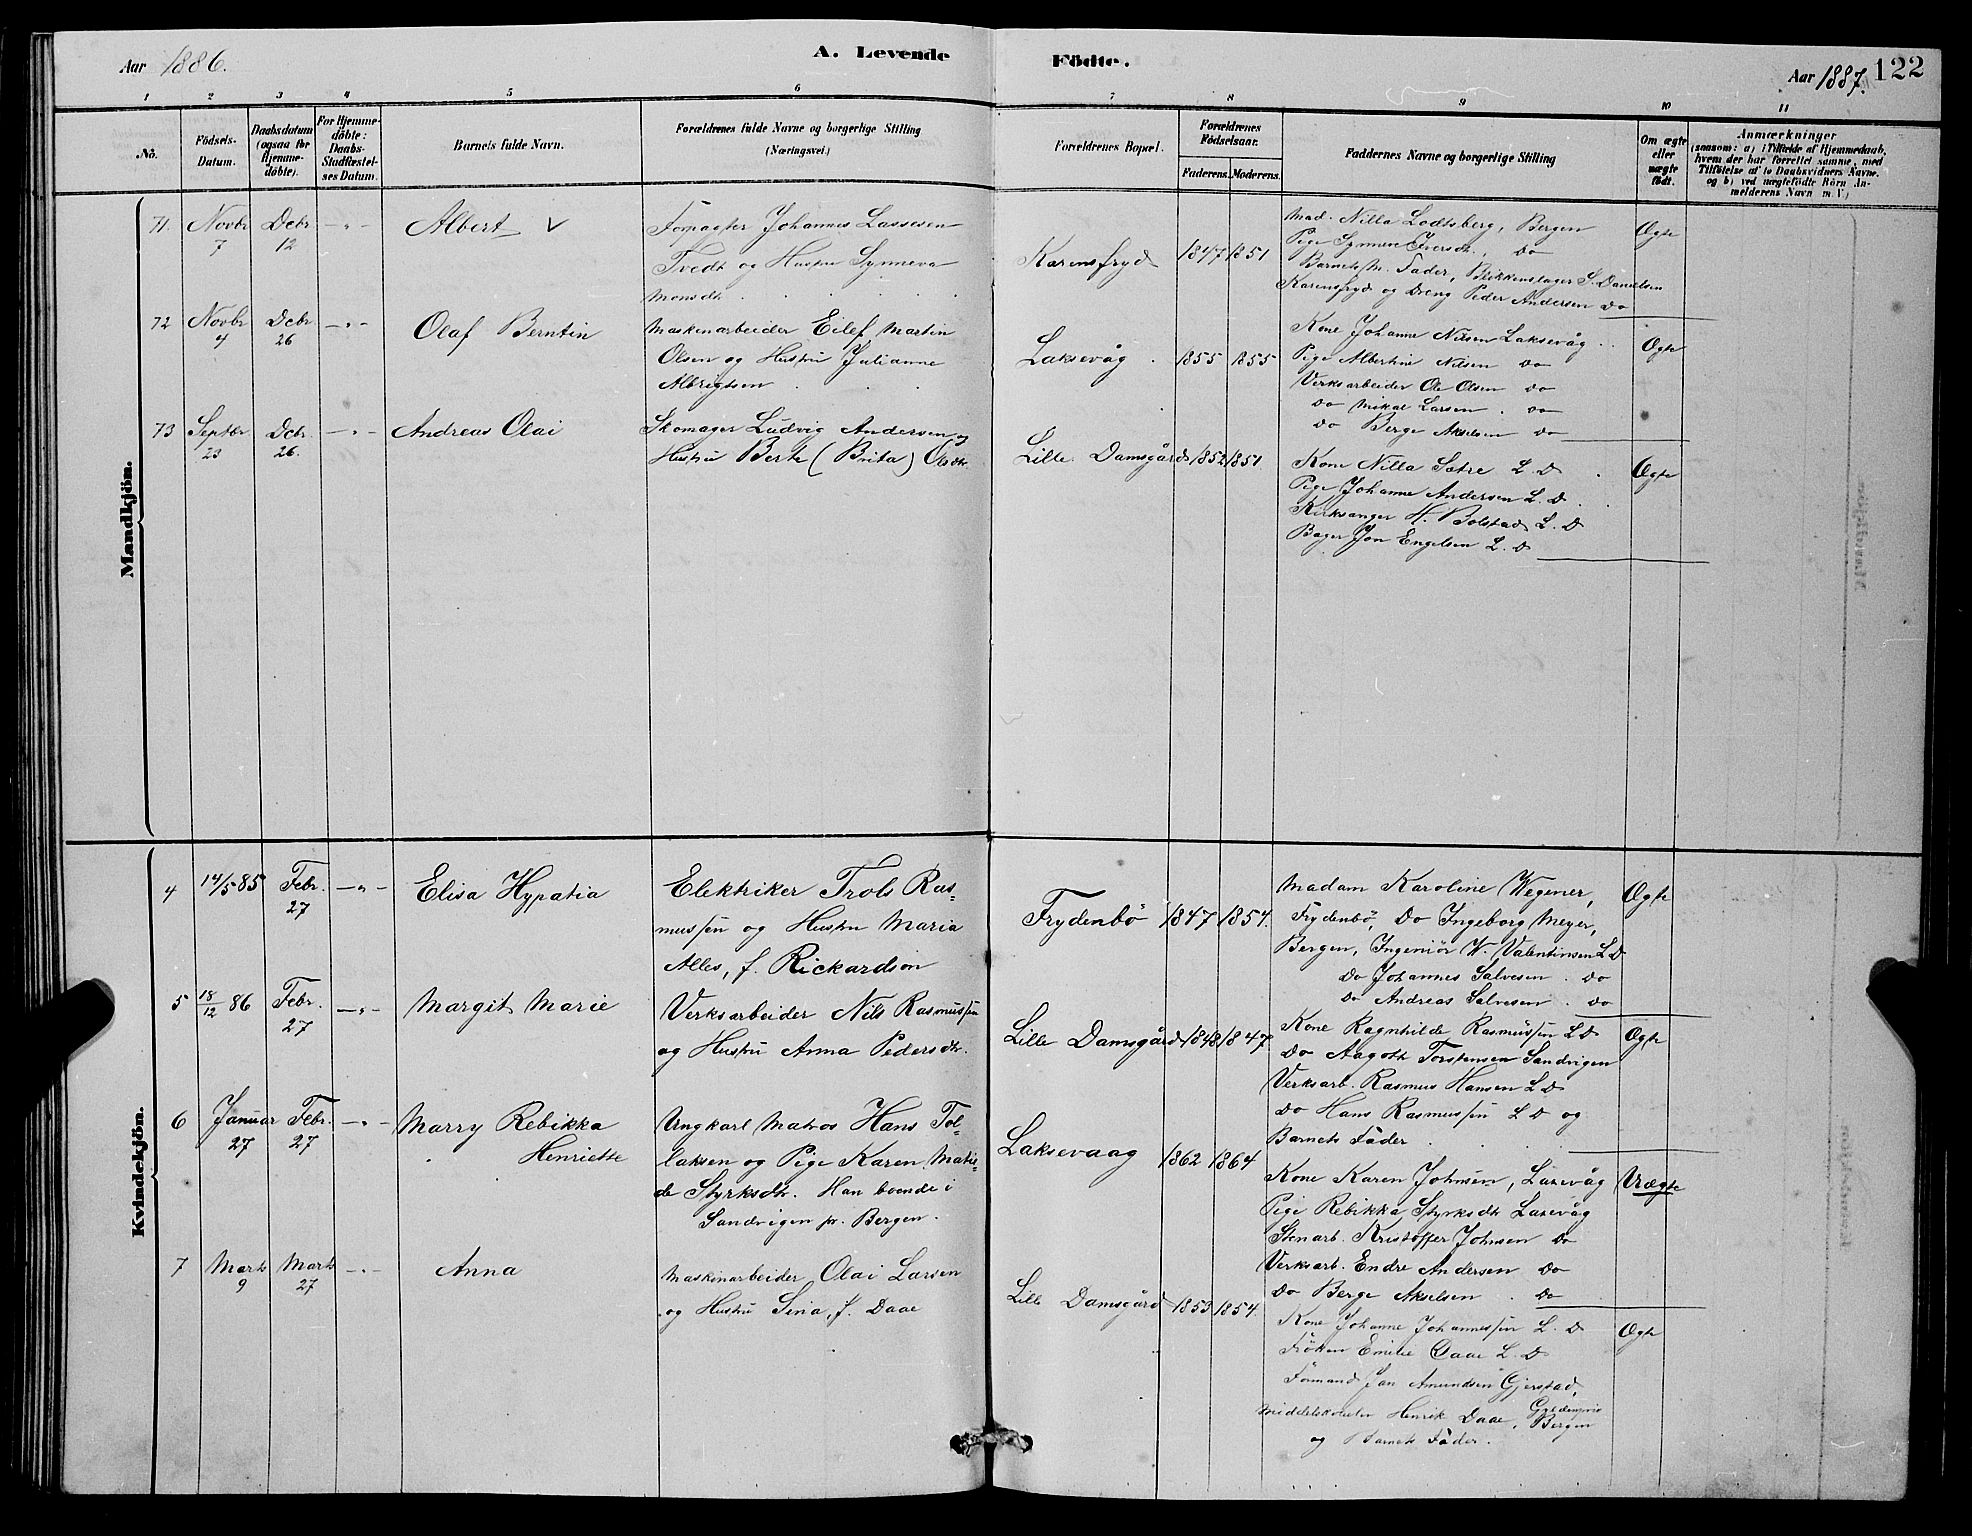 Aar 1886.
A. Levende
Födte.
Aar 1887.
122
1 2 3 4 5 6 7 8 9 10 11
No.
Födsels-Datum.
Daabsdatum (ogsaa for Hjemme-döbte).
For Hjemme-döbte: Daabs-Stadfæstel-ses Datum.
Barnets fulde Navn.
Forældrenes fulde Navne og borgerlige Stilling (Næringsvei.)
Forældrenes Bopæl.
Forældrenes Födselsaar.
Faderens. Moderens.
Faddernes Navne og borgerlige Stilling
Om ægte eller uægte födt.
Anmærkninger
(saasom: a) i Tilfælde af Hjemmedaab,
hvem der har forrettet samme, med
Tilföielse af to Daabsvidners Navne.
og b) ved uægtefödte Börn An-
melderens Navn m. V.)
Mandkjön.
71. Novbr 7 Dcbr 12 - " - Albert V
Forpagter Johannes Lassesen
Tvedt og Hustru Synneva
Monsdtr.
Karensfryd 1847 1851
Mad. Nilla Lodtsberg, Bergen
Pige Synneve Iversdt., do
Barnets M. Fader, Blikkenslager S. Danielsen
Karensfryd og Dreng Peder Andersen do
Ægte
72 Novbr 4 Dcbr 26 - " - Olaf Berntin
Maskinarbeider Eilef Martin
Olsen og Hustru Julianne
Albrigtsen
Laksevåg. 1855 1855
Kone Johanne Nilsen Laksevåg
Pige Albertine Nilsen do
Verksarbeider Ole Olsen do
do Mikal Larsen. do
do Berge Akselsen do
Ægte
73 Septbr 23 Dcbr. 26. - " - Andreas Olai
Skomager Ludvig Andersen og
Hustru Berte (Brita) Olsdtr.
Lille Damsgård 1852 1851.
Kone Nilla Sætre L. D.
Pige Johanne Andersen L. D.
Kirksanger H. Bolstad L. D
Bager Jon Engelsen L. D
Ægte
Kvindekjön.
4 14/5 85 Febr. 27 - " - Elisa Hypatia
Elektriker Trols Ras-
mussen og Hustru Maria
Alles, f. Rickardson
Frydenbö 1847 1854.
Madam Karoline Wegener,
Frydenbö, Do Ingeborg Meyer,
Bergen, Ingeniör W. Valentinsen L D
do Johannes Salvesen. do
do Andreas Salvesen. do
Ægte
5 18/12 86 Febr. 27 - " - Margit Marie
Verksarbeider Nils Rasmussen
og Hustru Anna Pedersdtr.
Lille Damsgård 1848 1847.
Kone Ragnhilde Rasmussen L D
do Aagoth Torstensen Sandvigen
Verksarb. Rasmus Hansen L D
do Hans Rasmussen L D og
Barnets Fader
Ægte
6 Januar 27 Febr. 27 - " - Marry Rebikka
Henriette
Ungkarl Matros Hans Tol-
laksen og Pige Karen Mathil-
de Styrksdtr. Han boende i
Sandvigen pr. Bergen.
Laksevaag 1862 1864
Kone Karen Johnsen, Laxevåg
Pige Rebikka Styrksdtr Laxevåg
Stenarb. Kristoffer Johnsen do
Verksarb. Endre Andersen do
do Berge Akselsen. do
Uægte
7 Marts 9 Marts 27 - " - Anna
Maskinarbeider Olai Larsen
og Hustru Sina, f. Daae
Lille Damsgård 1853 1854.
Kone Johanne Johannessen L. D
Fröken Emilie Daae L. D
Formand Jan Amundsen Gjerstad,
Middelskoleelev Henrik Daae, Bergen
og Barnets Fader.
Ægte